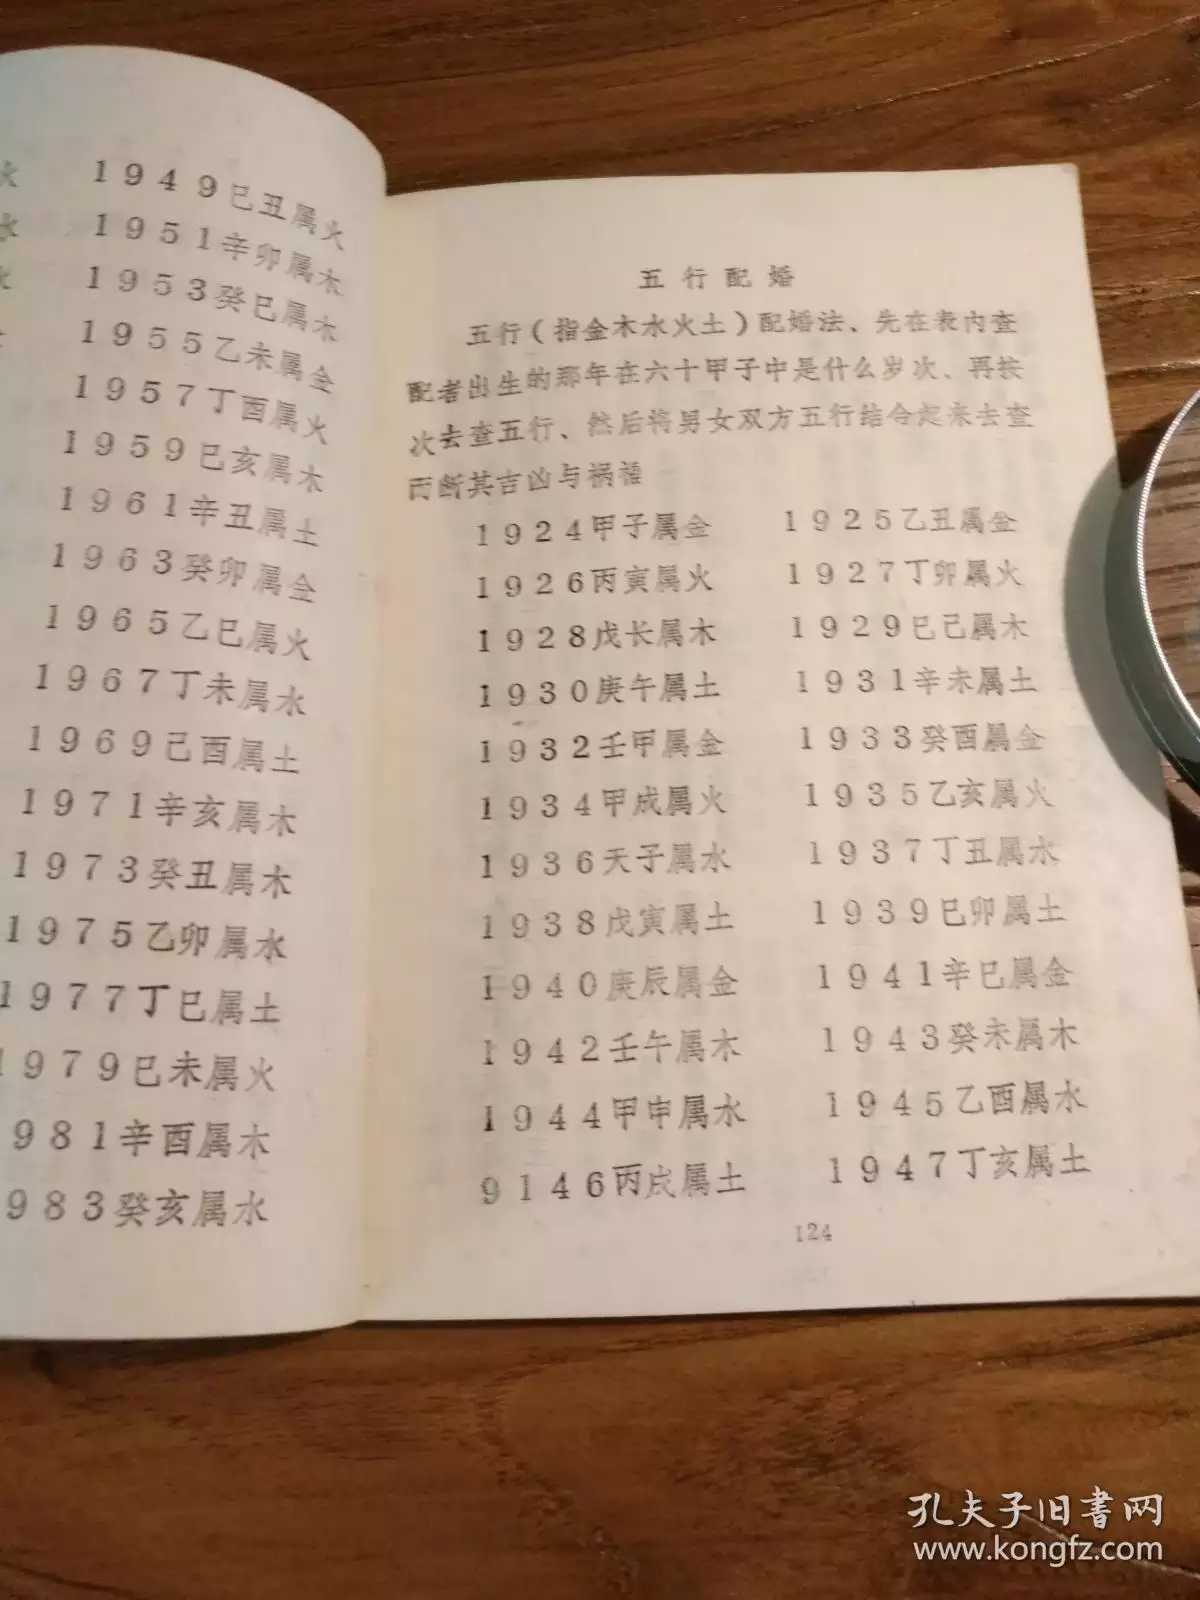 火
1949巳丑属火
水
1951辛卯属木
水
1953癸巳属木
1955乙未属金
1957丁酉属火
1959巳亥属木
1961辛丑属土
1963癸卯属金
1965乙巳属火
1967丁未属水
1969己酉属土
1971辛亥属木
1973癸丑属木
1975乙卯属水
1977丁巳属土
1979巳未属火
981辛酉属木
983癸亥属水
五行配婚
五行（指金木水火土）配婚法、先在表内查
配者出生的那年在六十甲子中是什么岁次、再按
次去查五行、然后将男女双方五行结合起来去查
而断其吉凶与祸福
1924甲子属金 1925乙丑属金
1926丙寅属火 1927丁卯属火
1928戊长属木 1929巳己属木
1930庚午属土 1931辛未属土
1932壬甲属金 1933癸酉属金
1934甲成属火 1935乙亥属火
1936天子属水 1937丁丑属水
1938戊寅属土 1939巳卯属土
1940庚辰属金 1941辛巳属金
1942壬午属木 1943癸未属木
1944甲申属水 1945乙酉属水
9146丙戌属土 1947丁亥属土
124
孔夫子旧书网
www.kongfz.com